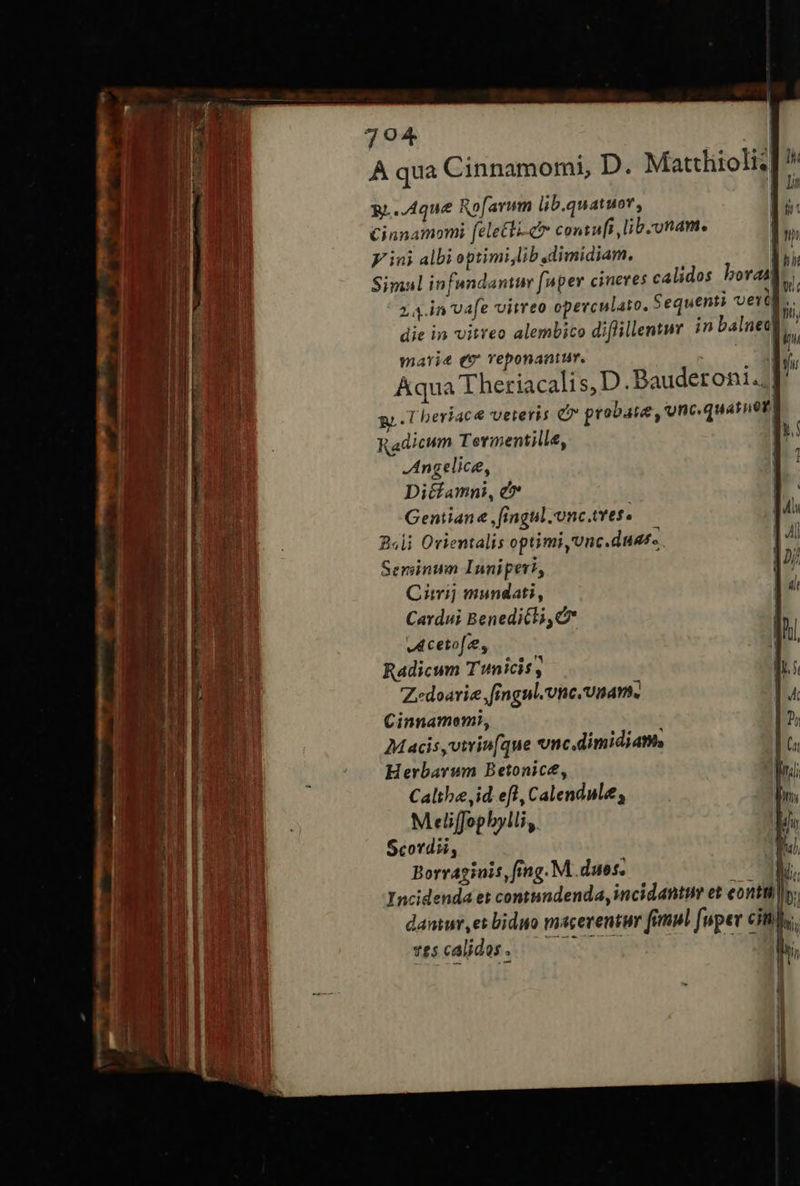 704
Aqua Cinnamomi, D. Matthioli.
℞. Aquæ Rosarum lib.quatuor,
Cinnamomi selecti & contusi, lib.vnam.
Vini albi optimi, lib.dimidiam.
Simul infundantur super cineres calidos horas
24.in vase vitreo operculato. Sequenti verò
die in vitreo alembico distillentur in balneo
mariæ & reponantur.
Aqua Theriacalis, D. Bauderoni.
℞. Theriacæ veteris & probatæ, vnc.quatuor
Radicum Tormentillæ,
Angelicæ,
Dictamni, &
Gentianæ, singul.vnc.tres.
Boli Orientalis optimi, vnc.duas.
Seminum Iuniperi,
Citrij mundati,
Cardui Benedicti, &
Acetosæ,
Radicum Tunicis,
Zedoariæ, singul.vnc.vnam.
Cinnamomi,
Macis, vtriusque vnc.dimidiam.
Herbarum Betonicæ,
Calthæ, id est, Calendulæ,
Melissophylli,
Scordii,
Borraginis, sing.M.duos.
Incidenda et contundenda, incidantur et contũ
dantur, et biduo macerentur simul super cine
res calidos.